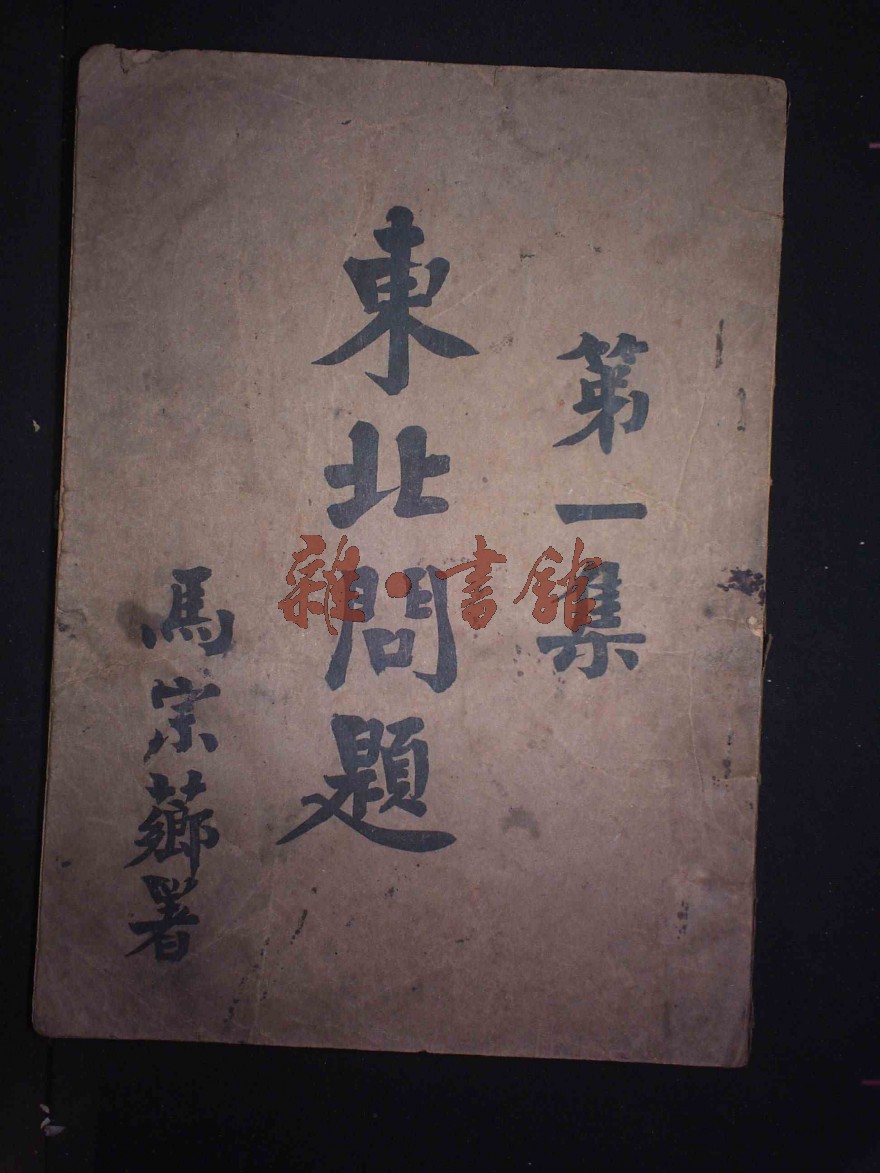 第一集
東北問題
馮宗薌署
雜·書館